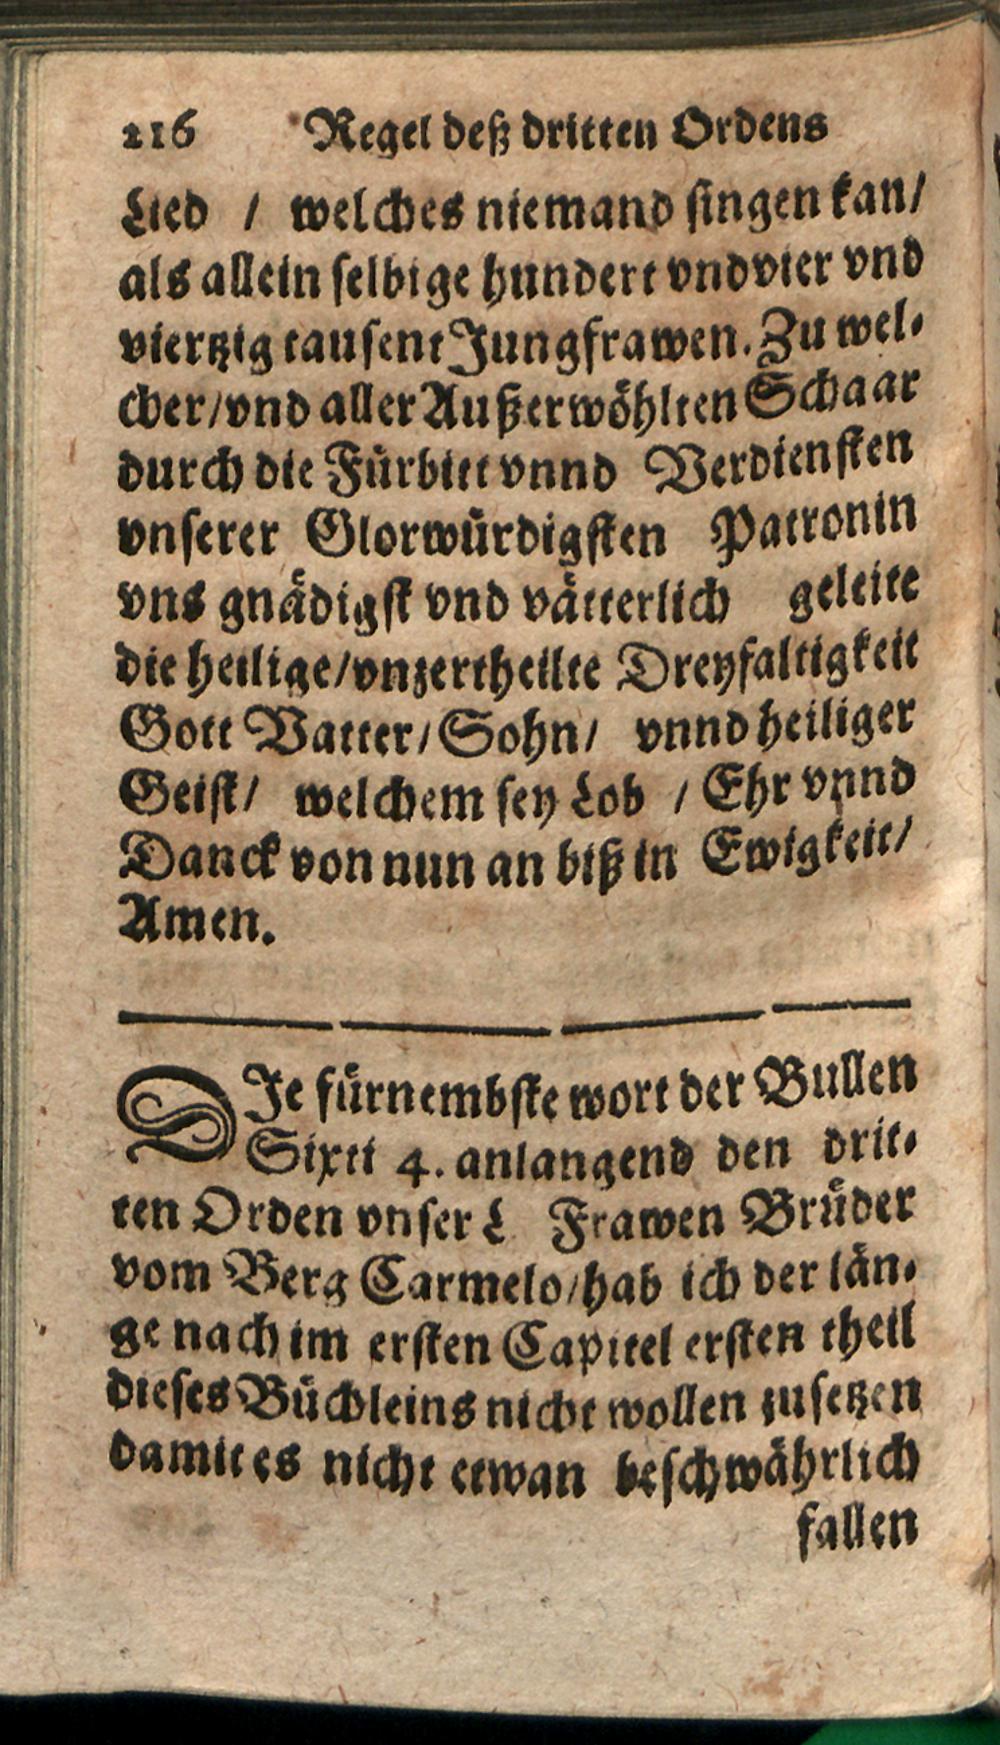 216 Regel deß dritten Ordens
Lied / welches niemand singen kan/
als allein selbige hundert vnd vier vnd
viertzig tausent Jungfrawen. Zu wel-
cher/vnd aller Außerwöhlten Schaar
durch die Fürbitt vnnd Verdiensten
vnserer Glorwürdigsten Patronin
vns gnädigst vnd vätterlich geleite
die heilige/vnzertheilte Dreyfaltigkeit
Gott Vatter/Sohn/ vnnd heiliger
Geist/ welchem sey Lob / Ehr vnnd
Danck von nun an biß in Ewigkeit/
Amen.
DJe fürnembste wort der Bullen
Sixti 4. anlangend den drit-
ten Orden vnser L Frawen Brüder
vom Berg Carmelo/hab ich der län-
ge nach im ersten Capitel ersten theil
dieses Büchleins nicht wollen zusetzen
damit es nicht etwan beschwährlich
fallen